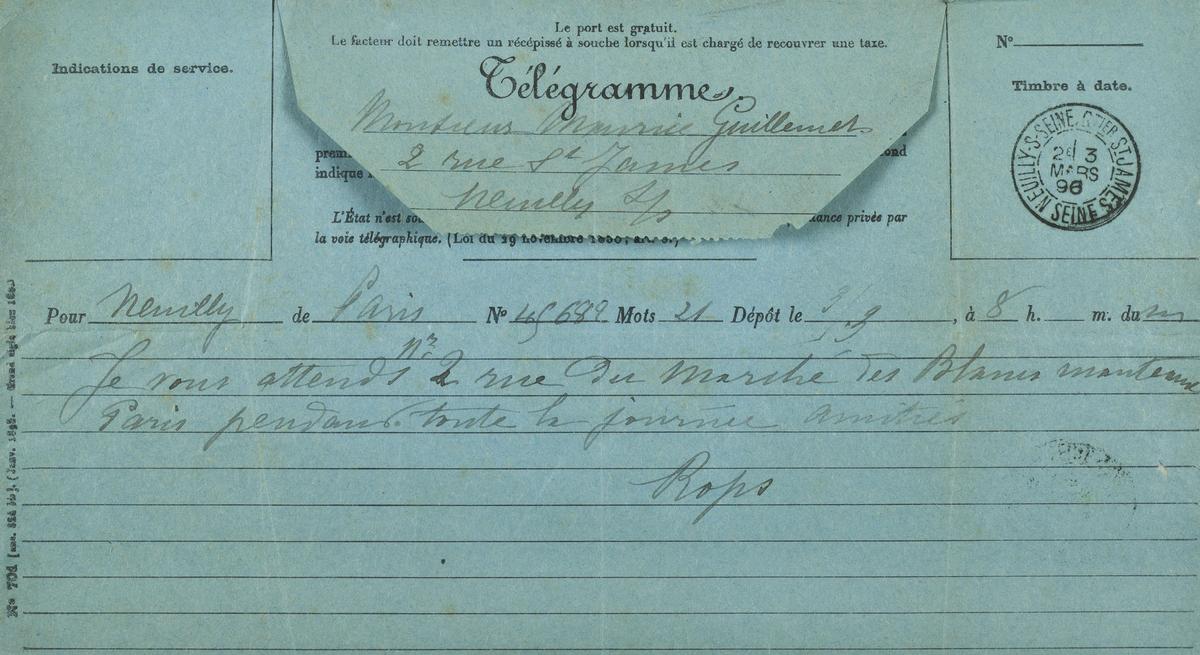 Le port est gratuit.
Le facteur doit remettre un récépissé à souche lorsqu'il est chargé de recouvrer une taxe.
Indications de service.
Télégramme.
Monsieur Maurice Guillemet
2 rue St James
Neuilly S/s
indique
L'État n'est
privée par
la voie télégraphique. (Loi du
N°
Timbre à date.
NEUILLY-S-SEINE. QTIER ST JAMES
3
MARS
96
SEINE
Pour Neuilly de Paris N° 45682 Mots 21 Dépôt le 3/3, à 8 h. m. du m
Je vous attends Nr 2 rue du Marché des Blancs manteaux
Paris pendant toute la journée amitiés
Rops
N° 701